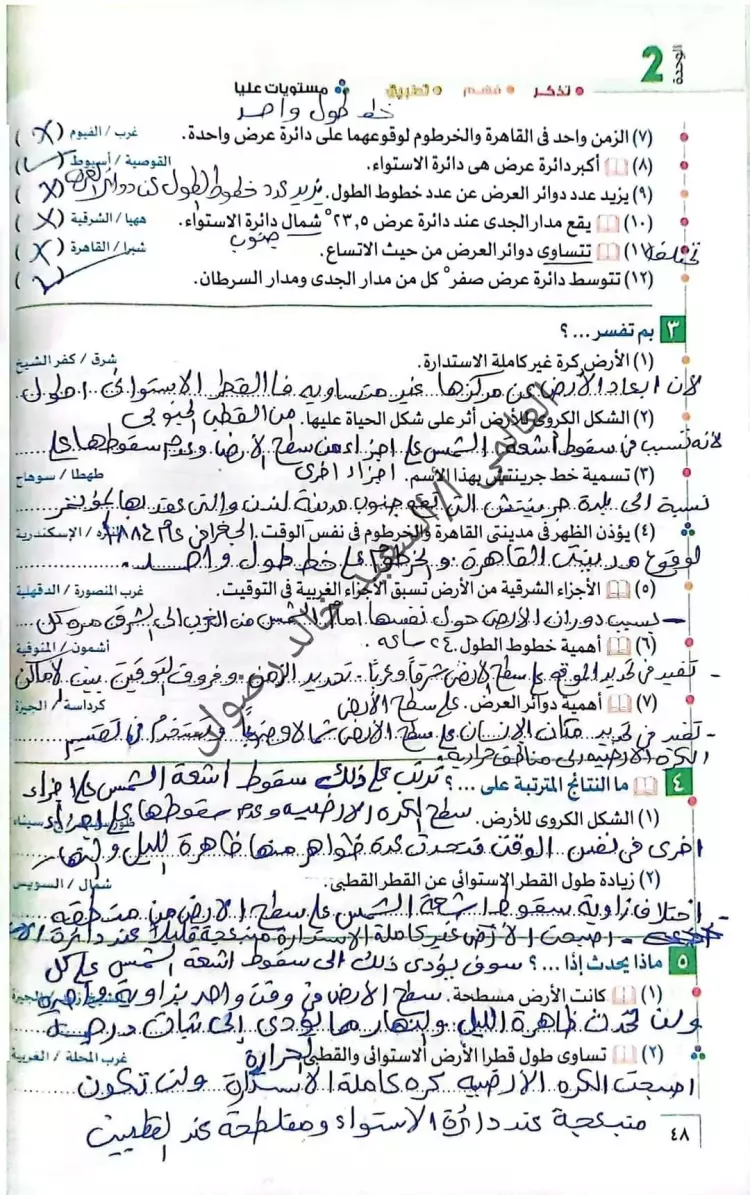 الوحدة 2
تذكر فهم تطبيق مستويات عليا
خط طول واحد
(٧) الزمن واحد فى القاهرة والخرطوم لوقوعهما على دائرة عرض واحدة. غرب / الفيوم (X)
(٨) أكبر دائرة عرض هى دائرة الاستواء. القوصية / أسيوط (✓)
(٩) يزيد عدد دوائر العرض عن عدد خطوط الطول. يزيد عدد خطوط الطول عن دوائر العرض (X)
(١٠) يقع مدار الجدى عند دائرة عرض ٢٣,٥° شمال دائرة الاستواء. ههيا / الشرقية (X)
جنوب
(١١) تتساوى دوائر العرض من حيث الاتساع. شبرا / القاهرة (X)
مختلفة
(١٢) تتوسط دائرة عرض صفر° كل من مدار الجدى ومدار السرطان. (✓)
٣ بم تفسر ...؟
(١) الأرض كرة غير كاملة الاستدارة. شرق / كفر الشيخ
لأن ابعاد الأرض عن مركزها غير متساوية فالقطر الاستوائى اطول
من القطر
(٢) الشكل الكروى للأرض أثر على شكل الحياة عليها.
لأنه تسبب فى سقوط أشعة الشمس على اجزاء من سطح الأرض وعدم سقوطها على
اجزاء اخرى
(٣) تسمية خط جرينتش بهذا الاسم. طهطا / سوهاج
نسبة الى بلدة جرينتش التى تقع جنوب مدينة لندن والتى عقد بها المؤتمر
الجغرافى عام ١٨٨٤
(٤) يؤذن الظهر فى مدينتى القاهرة والخرطوم فى نفس الوقت. المنتزه / الإسكندرية
لوقوع مدينتى القاهرة والخرطوم على خط طول واحد
(٥) الأجزاء الشرقية من الأرض تسبق الأجزاء الغربية فى التوقيت. غرب المنصورة / الدقهلية
بسبب دوران الأرض حول نفسها امام الشمس من الغرب الى الشرق مرة كل
٢٤ ساعه.
(٦) أهمية خطوط الطول. أشمون / المنوفية
- تفيد فى تحديد الموقع على سطح الأرض شرقاً وغرباً - تحديد الزمن وفروق التوقيت بين الأماكن
على سطح الأرض
(٧) أهمية دوائر العرض. كرداسة / الجيزة
- تفيد فى تحديد مكان الإنسان على سطح الأرض شمالا وجنوبا وتستخدم فى تقسيم
الكرة الأرضية إلى مناطق حرارية.
٤ ما النتائج المترتبة على ...؟ ترتب على ذلك سقوط أشعة الشمس على اجزاء
(١) الشكل الكروى للأرض. سطح الكرة الارضيه وعدم سقوطها على اجزاء
اخرى فى نفس الوقت فتحدث عدة ظواهر منها ظاهرة الليل والنهار
(٢) زيادة طول القطر الإستوائى عن القطر القطبى. شمال / السويس
- اختلاف زاوية سقوط اشعة الشمس على سطح الارض من منطقه
- اصبحت الأرض غير كاملة الاستدارة منبعجة قليلاً عند دائرة
٥ ماذا يحدث إذا ...؟ سوف يؤدى ذلك الى سقوط اشعة الشمس على كل
(١) كانت الأرض مسطحة. سطح الأرض فى وقت واحد بزاوية واحدة
ولن تحدث ظاهرة الليل والنهار مما يؤدى إلى ثبات درجة
الحرارة
(٢) تساوى طول قطرا الأرض الاستوائى والقطبى. غرب المحلة / الغربية
اصبحت الكره الأرضيه كره كاملة الاستدارة ولن تكون
منبعجة عند دائرة الاستواء ومفلطحة عند القطبين
٤٨